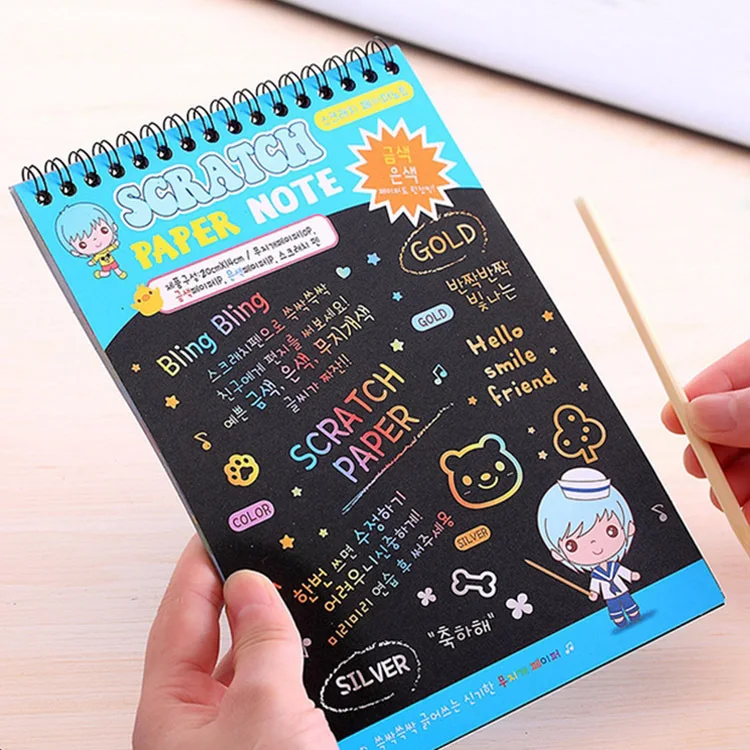 스크래치 페이퍼노트
SCRATCH
PAPER NOTE
금색
은색
페이퍼도 한장씩!
제품구성:20cmX14cm / 무지개페이퍼10P,
금색페이퍼1P, 은색페이퍼1P, 스크래치 펜
GOLD
반짝반짝
빛나는
Bling Bling
스크래치펜으로 쓱싹쓱싹
친구에게 편지를 써보세요!
예쁜 금색, 은색, 무지개색
글씨가 짜잔!!
GOLD
Hello
smile
friend
SCRATCH
PAPER
COLOR
한번 쓰면 수정하기
어려우니 신중하게!
미리미리 연습 후 써주세용
SILVER
"축하해"
SILVER
쓱싹쓱싹 긁어쓰는 신기한 무지개 페이퍼